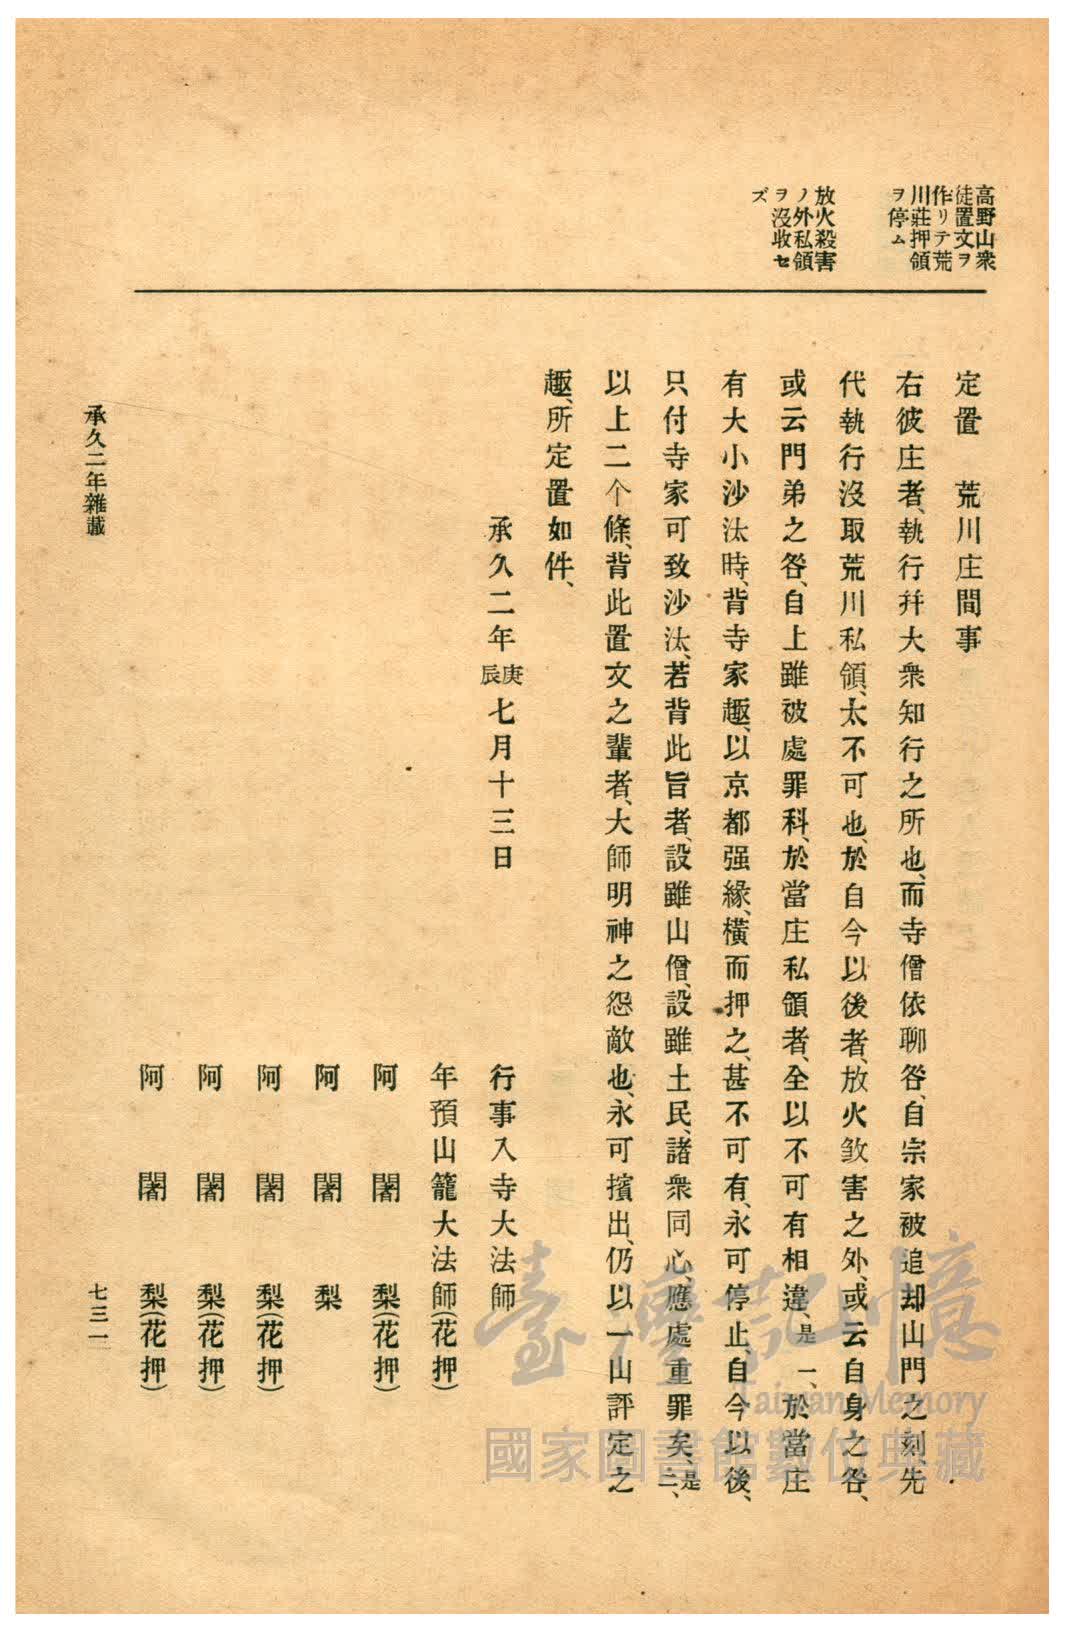 高野山衆
徒置文ヲ
作リテ荒
川莊押領
ヲ停ム
放火殺害
ノ外私領
ヲ沒收セ
ズ
定置　荒川庄間事
右彼庄者、執行幷大衆知行之所也、而寺僧依聊咎、自宗家被追却山門之刻、先
代執行沒取荒川私領、太不可也、於自今以後者、放火敓害之外、或云自身之咎、
或云門弟之咎、自上雖被處罪科、於當庄私領者、全以不可有相違、是一、於當庄
有大小沙汰時、背寺家趣、以京都强緣、橫而押之、甚不可有、永可停止、自今以後、
只付寺家可致沙汰、若背此旨者、設雖山僧、設雖土民、諸衆同心、應處重罪矣、是二、
以上二个條、背此置文之輩者、大師明神之怨敵也、永可擯出、仍以一山評定之
趣、所定置如件、
承久二年庚辰七月十三日
行事入寺大法師
年預山籠大法師(花押)
阿闍梨(花押)
阿闍梨
阿闍梨(花押)
阿闍梨(花押)
阿闍梨(花押)
承久二年雜載
七三一
臺灣記憶
Taiwan Memory
國家圖書館數位典藏